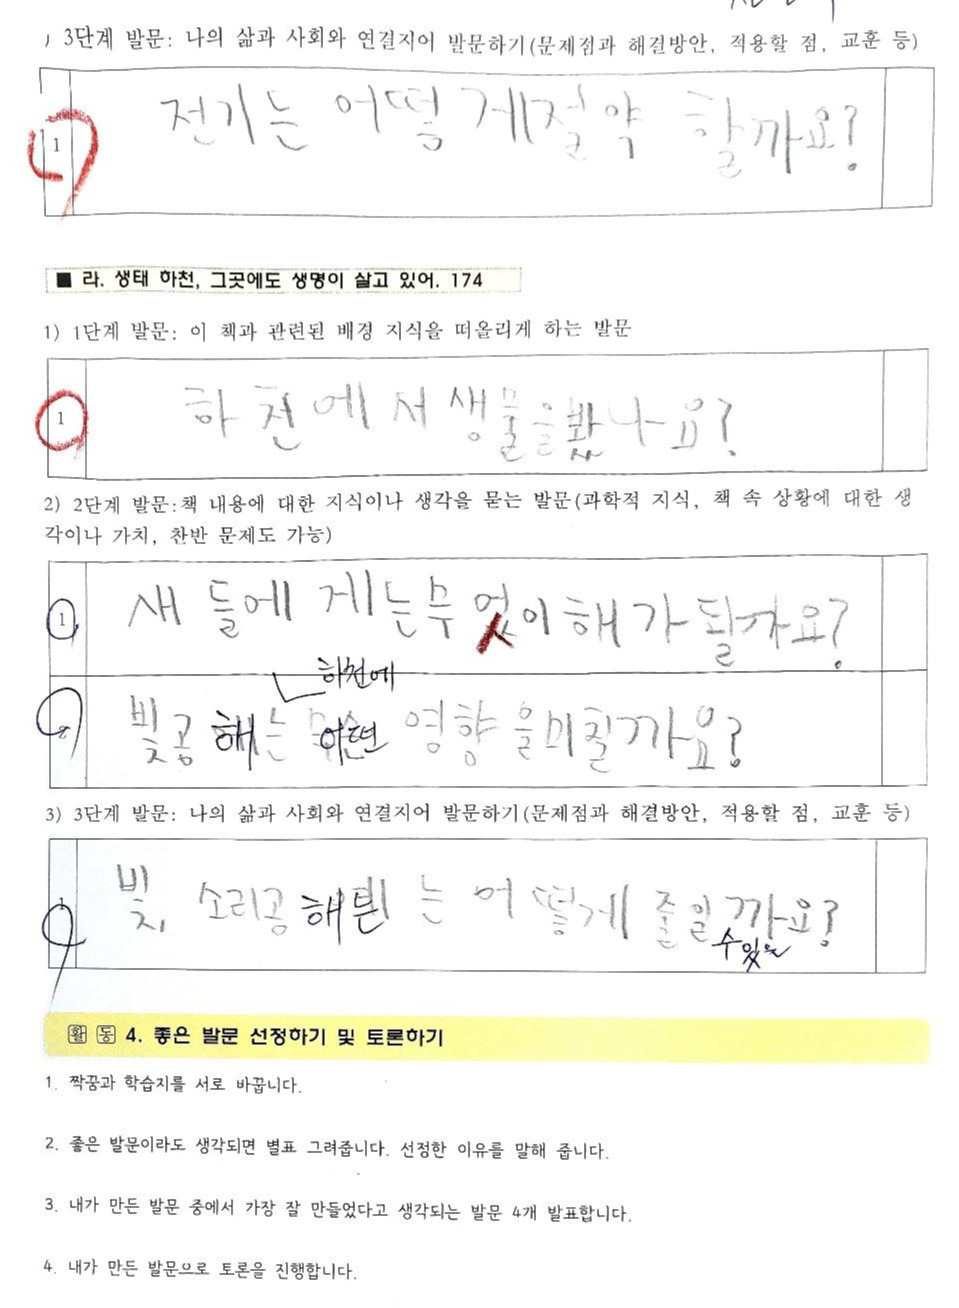 ) 3단계 발문: 나의 삶과 사회와 연결지어 발문하기(문제점과 해결방안, 적용할 점, 교훈 등)
1 전기는 어떻게절약 할까요?
■ 라. 생태 하천, 그곳에도 생명이 살고 있어. 174
1) 1단계 발문: 이 책과 관련된 배경 지식을 떠올리게 하는 발문
1 하천에서 생물을봤나요?
2) 2단계 발문:책 내용에 대한 지식이나 생각을 묻는 발문(과학적 지식, 책 속 상황에 대한 생
각이나 가치, 찬반 문제도 가능)
1 새들에게는무엇이해가될까요?
하천에
2 빛공해는 어떤 영향을미칠까요?
3) 3단계 발문: 나의 삶과 사회와 연결지어 발문하기(문제점과 해결방안, 적용할 점, 교훈 등)
1 빛, 소리공해 는 어떻게 줄일까요?
수있을
활동 4. 좋은 발문 선정하기 및 토론하기
1. 짝꿍과 학습지를 서로 바꿉니다.
2. 좋은 발문이라도 생각되면 별표 그려줍니다. 선정한 이유를 말해 줍니다.
3. 내가 만든 발문 중에서 가장 잘 만들었다고 생각되는 발문 4개 발표합니다.
4. 내가 만든 발문으로 토론을 진행합니다.